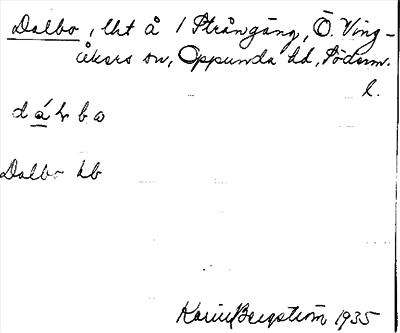 Dalbo, lht å 1 Strångäng, Ö. Ving-
åkers sn, Oppunda hd, Söderm.
l.
Dalbo hb
Karin Bergström 1935